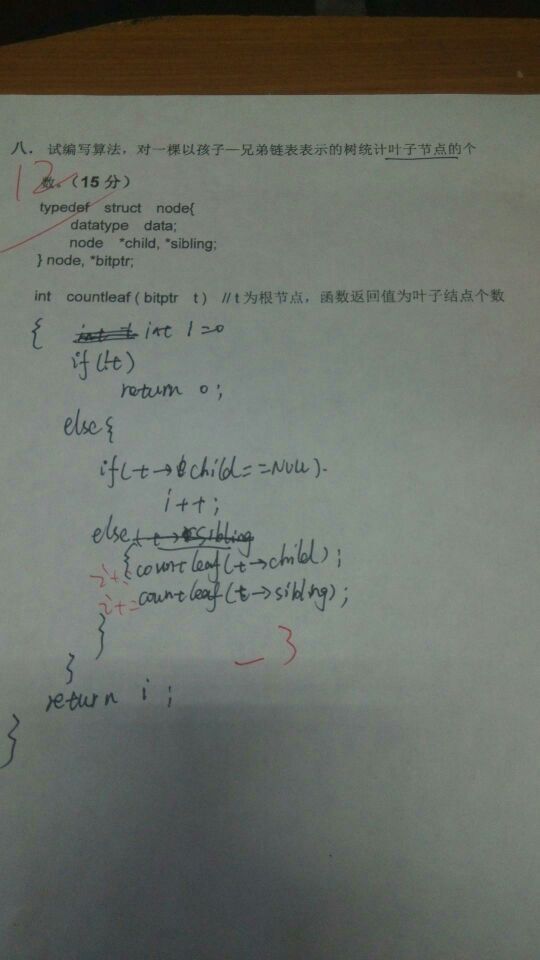 八. 试编写算法，对一棵以孩子—兄弟链表表示的树统计叶子节点的个
12
数。（15 分）
typedef struct node{
datatype data;
node *child, *sibling;
} node, *bitptr;
int countleaf ( bitptr t ) // t 为根节点，函数返回值为叶子结点个数
{ int i=0
if(!t)
return 0;
else{
if(t→child==NULL)
i++;
else
i+= {countleaf(t→child);
i+= countleaf(t→sibling);
}
-3
}
return i;
}